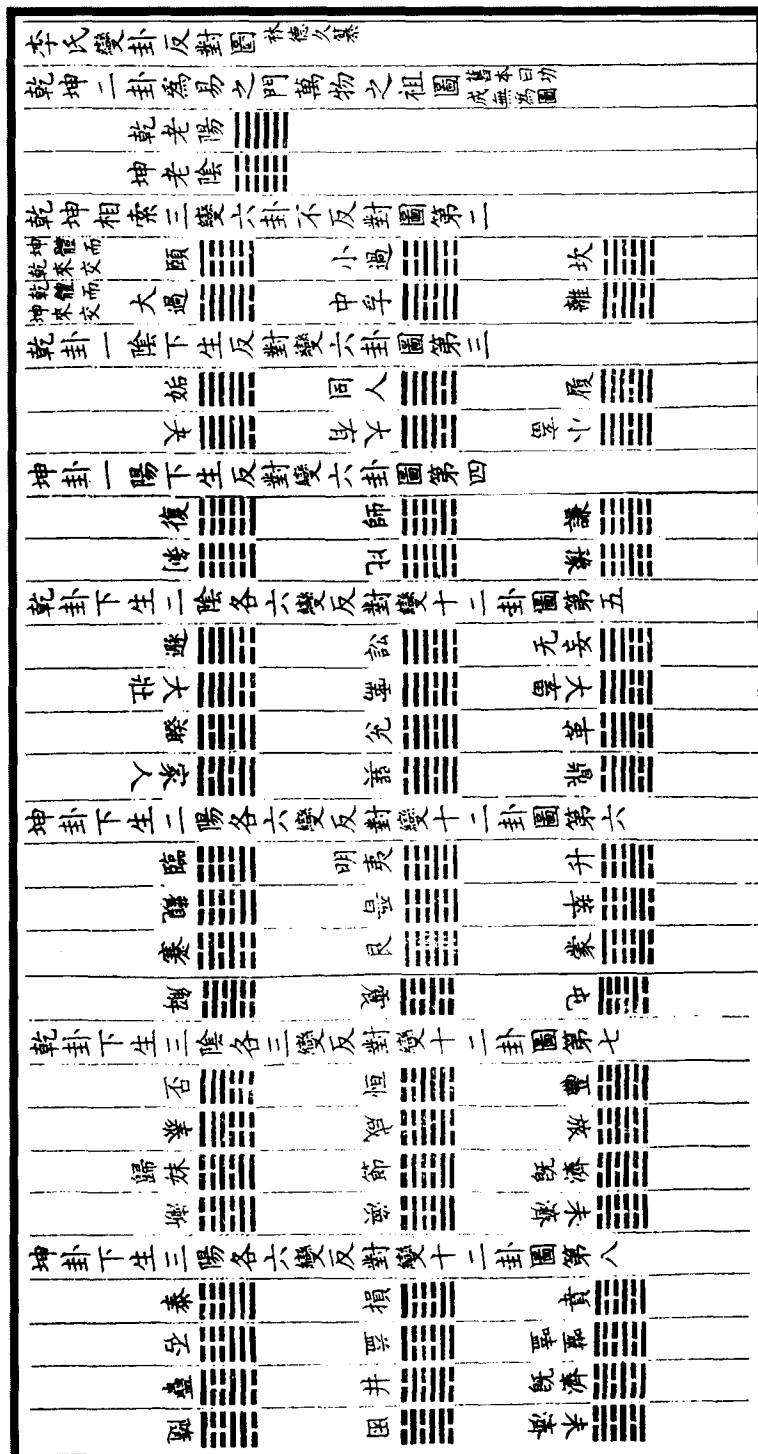 李氏變卦反對圖 林德久纂
乾坤二卦為易之門萬物之祖圖 舊本曰功成無為圖
乾老陽
坤老陰
乾坤相索三變六卦不反對圖第二
坤體而乾來交 頤 小過 坎
乾體而坤來交 大過 中孚 離
乾卦一陰下生反對變六卦圖第三
姤 同人 履
夬 大有 小畜
坤卦一陽下生反對變六卦圖第四
復 師 謙
剝 比 豫
乾卦下生二陰各六變反對變十二卦圖第五
遯 訟 无妄
大壯 需 大畜
睽 兌 革
家人 巽 鼎
坤卦下生二陽各六變反對變十二卦圖第六
臨 明夷 升
觀 晉 萃
蹇 艮 蒙
解 震 屯
乾卦下生三陰各三變反對變十二卦圖第七
否 恒 豐
泰 咸 旅
歸妹 節 既濟
漸 渙 未濟
坤卦下生三陽各六變反對變十二卦圖第八
泰 損 賁
否 益 噬嗑
蠱 井 既濟
隨 困 未濟